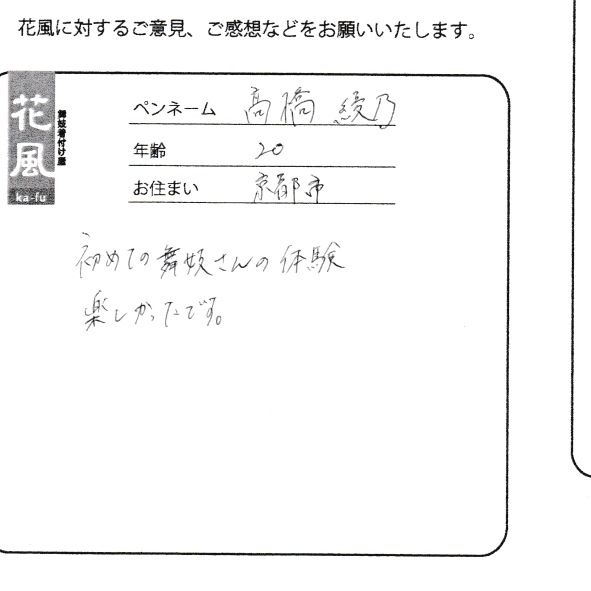 花風に対するご意見、ご感想などをお願いいたします。
花風
舞妓着付け屋
ka-fu
ペンネーム 高橋 綾乃
年齢 20
お住まい 京都市
初めての舞妓さんの体験
楽しかったです。